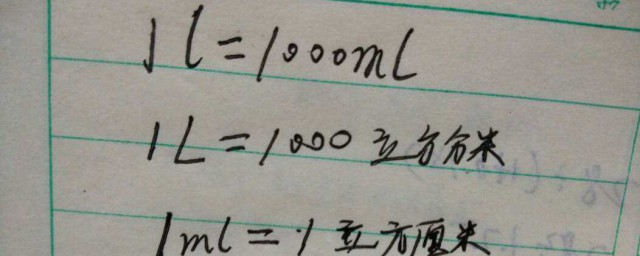 1l=1000ml
1L=1000立方分米
1ml=1立方厘米